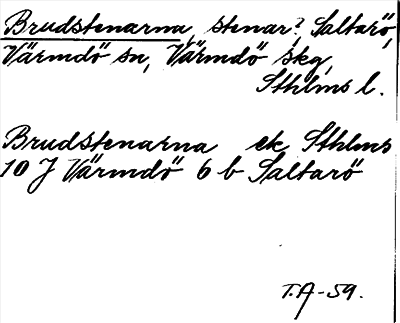 Brudstenarna, stenar? Saltarö,
Värmdö sn, Värmdö skg,
Sthlms l.
Brudstenarna ek Sthlms
10 J Värmdö 6 b Saltarö
T.A-59.